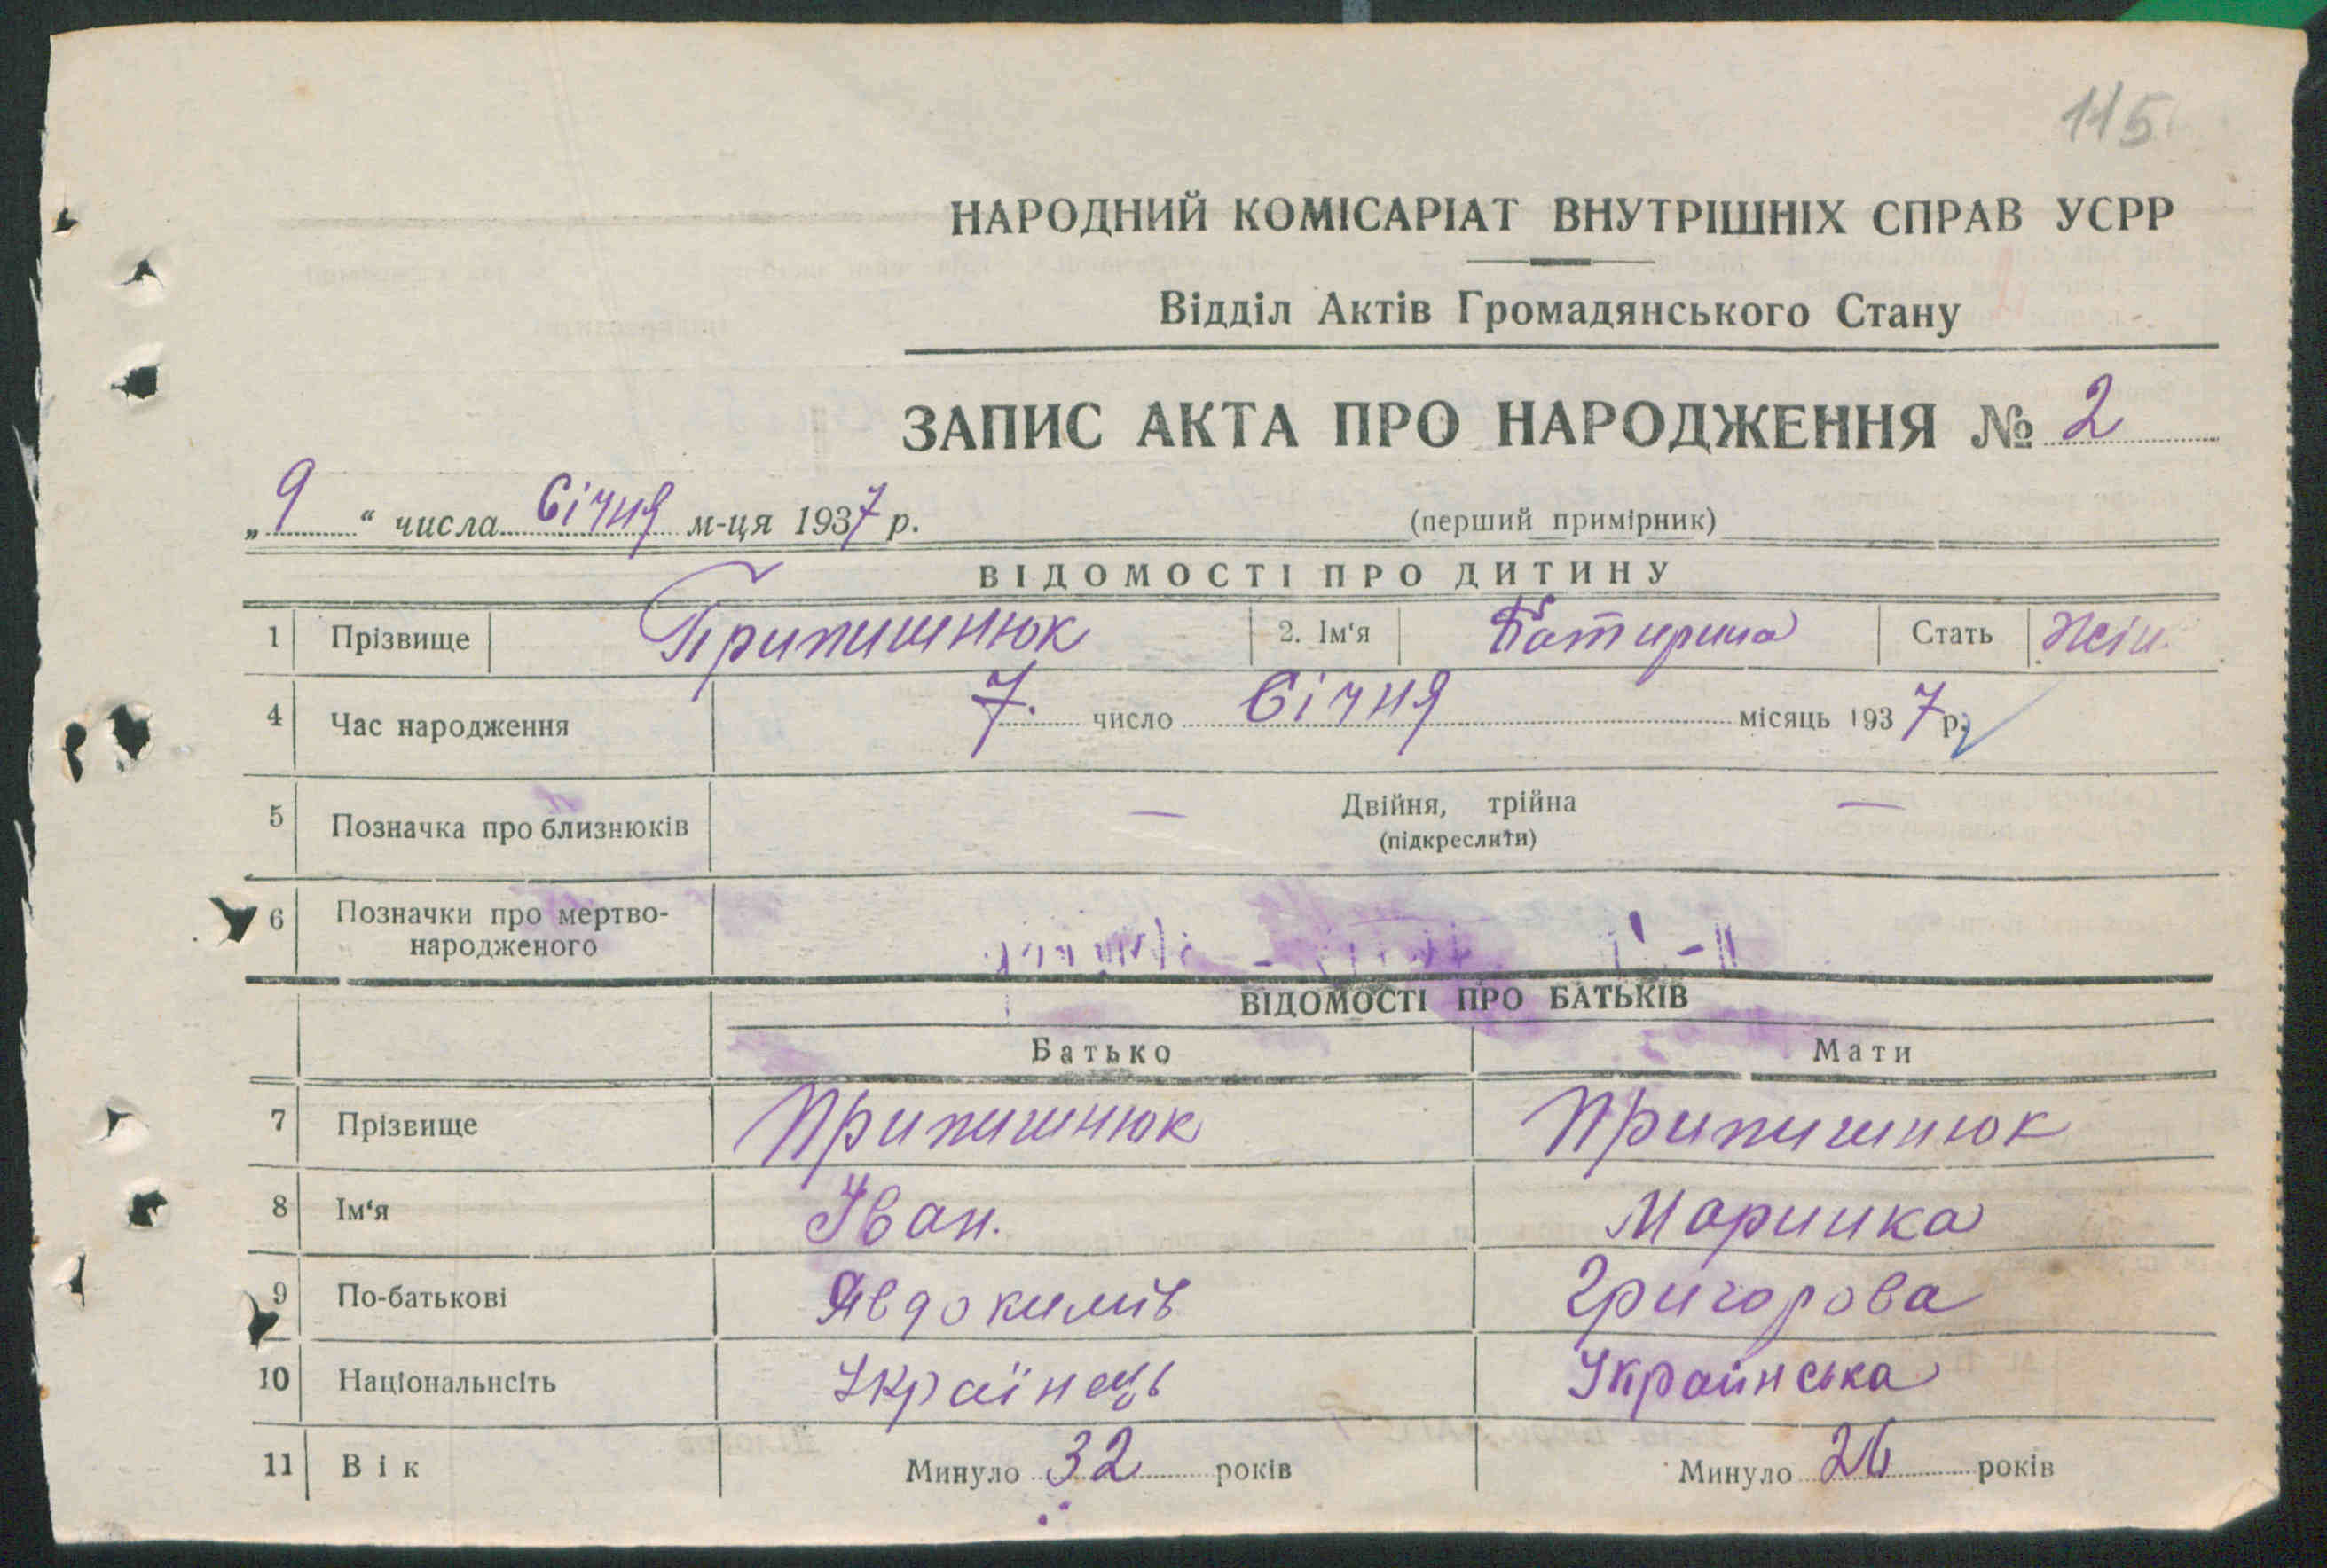 115
НАРОДНИЙ КОМІСАРІАТ ВНУТРІШНІХ СПРАВ УСРР
Відділ Актів Громадянського Стану
ЗАПИС АКТА ПРО НАРОДЖЕННЯ № 2
„ 9 “ числа Січня м-ця 1937 р.
(перший примірник)
ВІДОМОСТІ ПРО ДИТИНУ
1 Прізвище Припишнюк 2. Ім'я Стать Жін.
4 Час народження 7. число Січня місяць 1937 р.
5 Позначка про близнюків — Двійня, трійна —
(підкреслити)
6 Позначки про мертво-
народженого
ВІДОМОСТІ ПРО БАТЬКІВ
Батько Мати
7 Прізвище Припишнюк Припишнюк
8 Ім'я Іван. Маринка
9 По-батькові Явдокимів Григорова
10 Національнсіть Українець Украинська
11 Вік Минуло 32 років Минуло 26 років